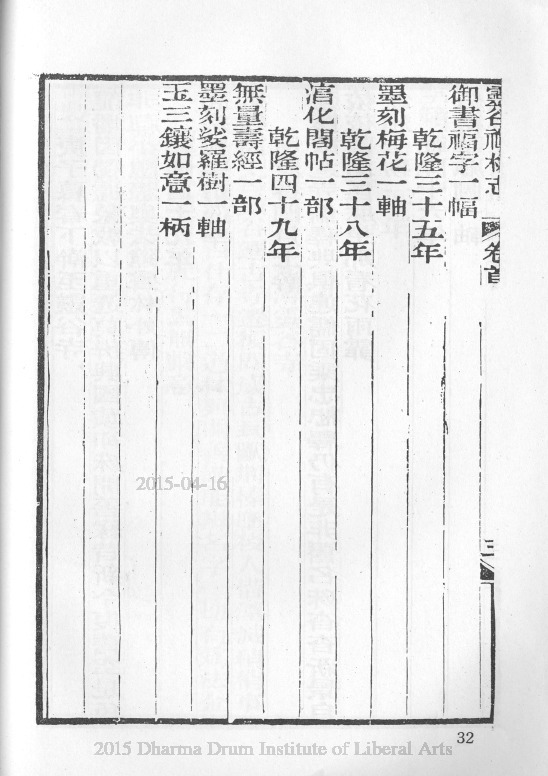 靈谷禪林志 卷首 三
御書福字一幅
乾隆三十五年
墨刻梅花一軸
乾隆三十八年
淳化閣帖一部
乾隆四十九年
無量壽經一部
墨刻娑羅樹一軸
玉三鑲如意一柄
2015-04-16
32
2015 Dharma Drum Institute of Liberal Arts